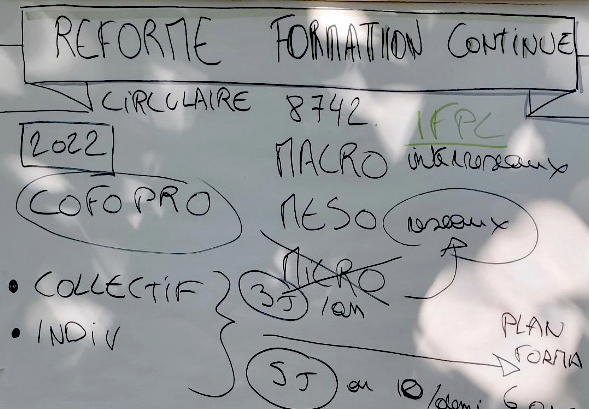 REFORME FORMATION CONTINUE
CIRCULAIRE 8742.
IFPC
2022
MACRO interreseaux
COFOPRO
MESO reseaux
MICRO
• COLLECTIF
3J /an
• INDIV
PLAN
FORMA
5J ou 10/demi 6